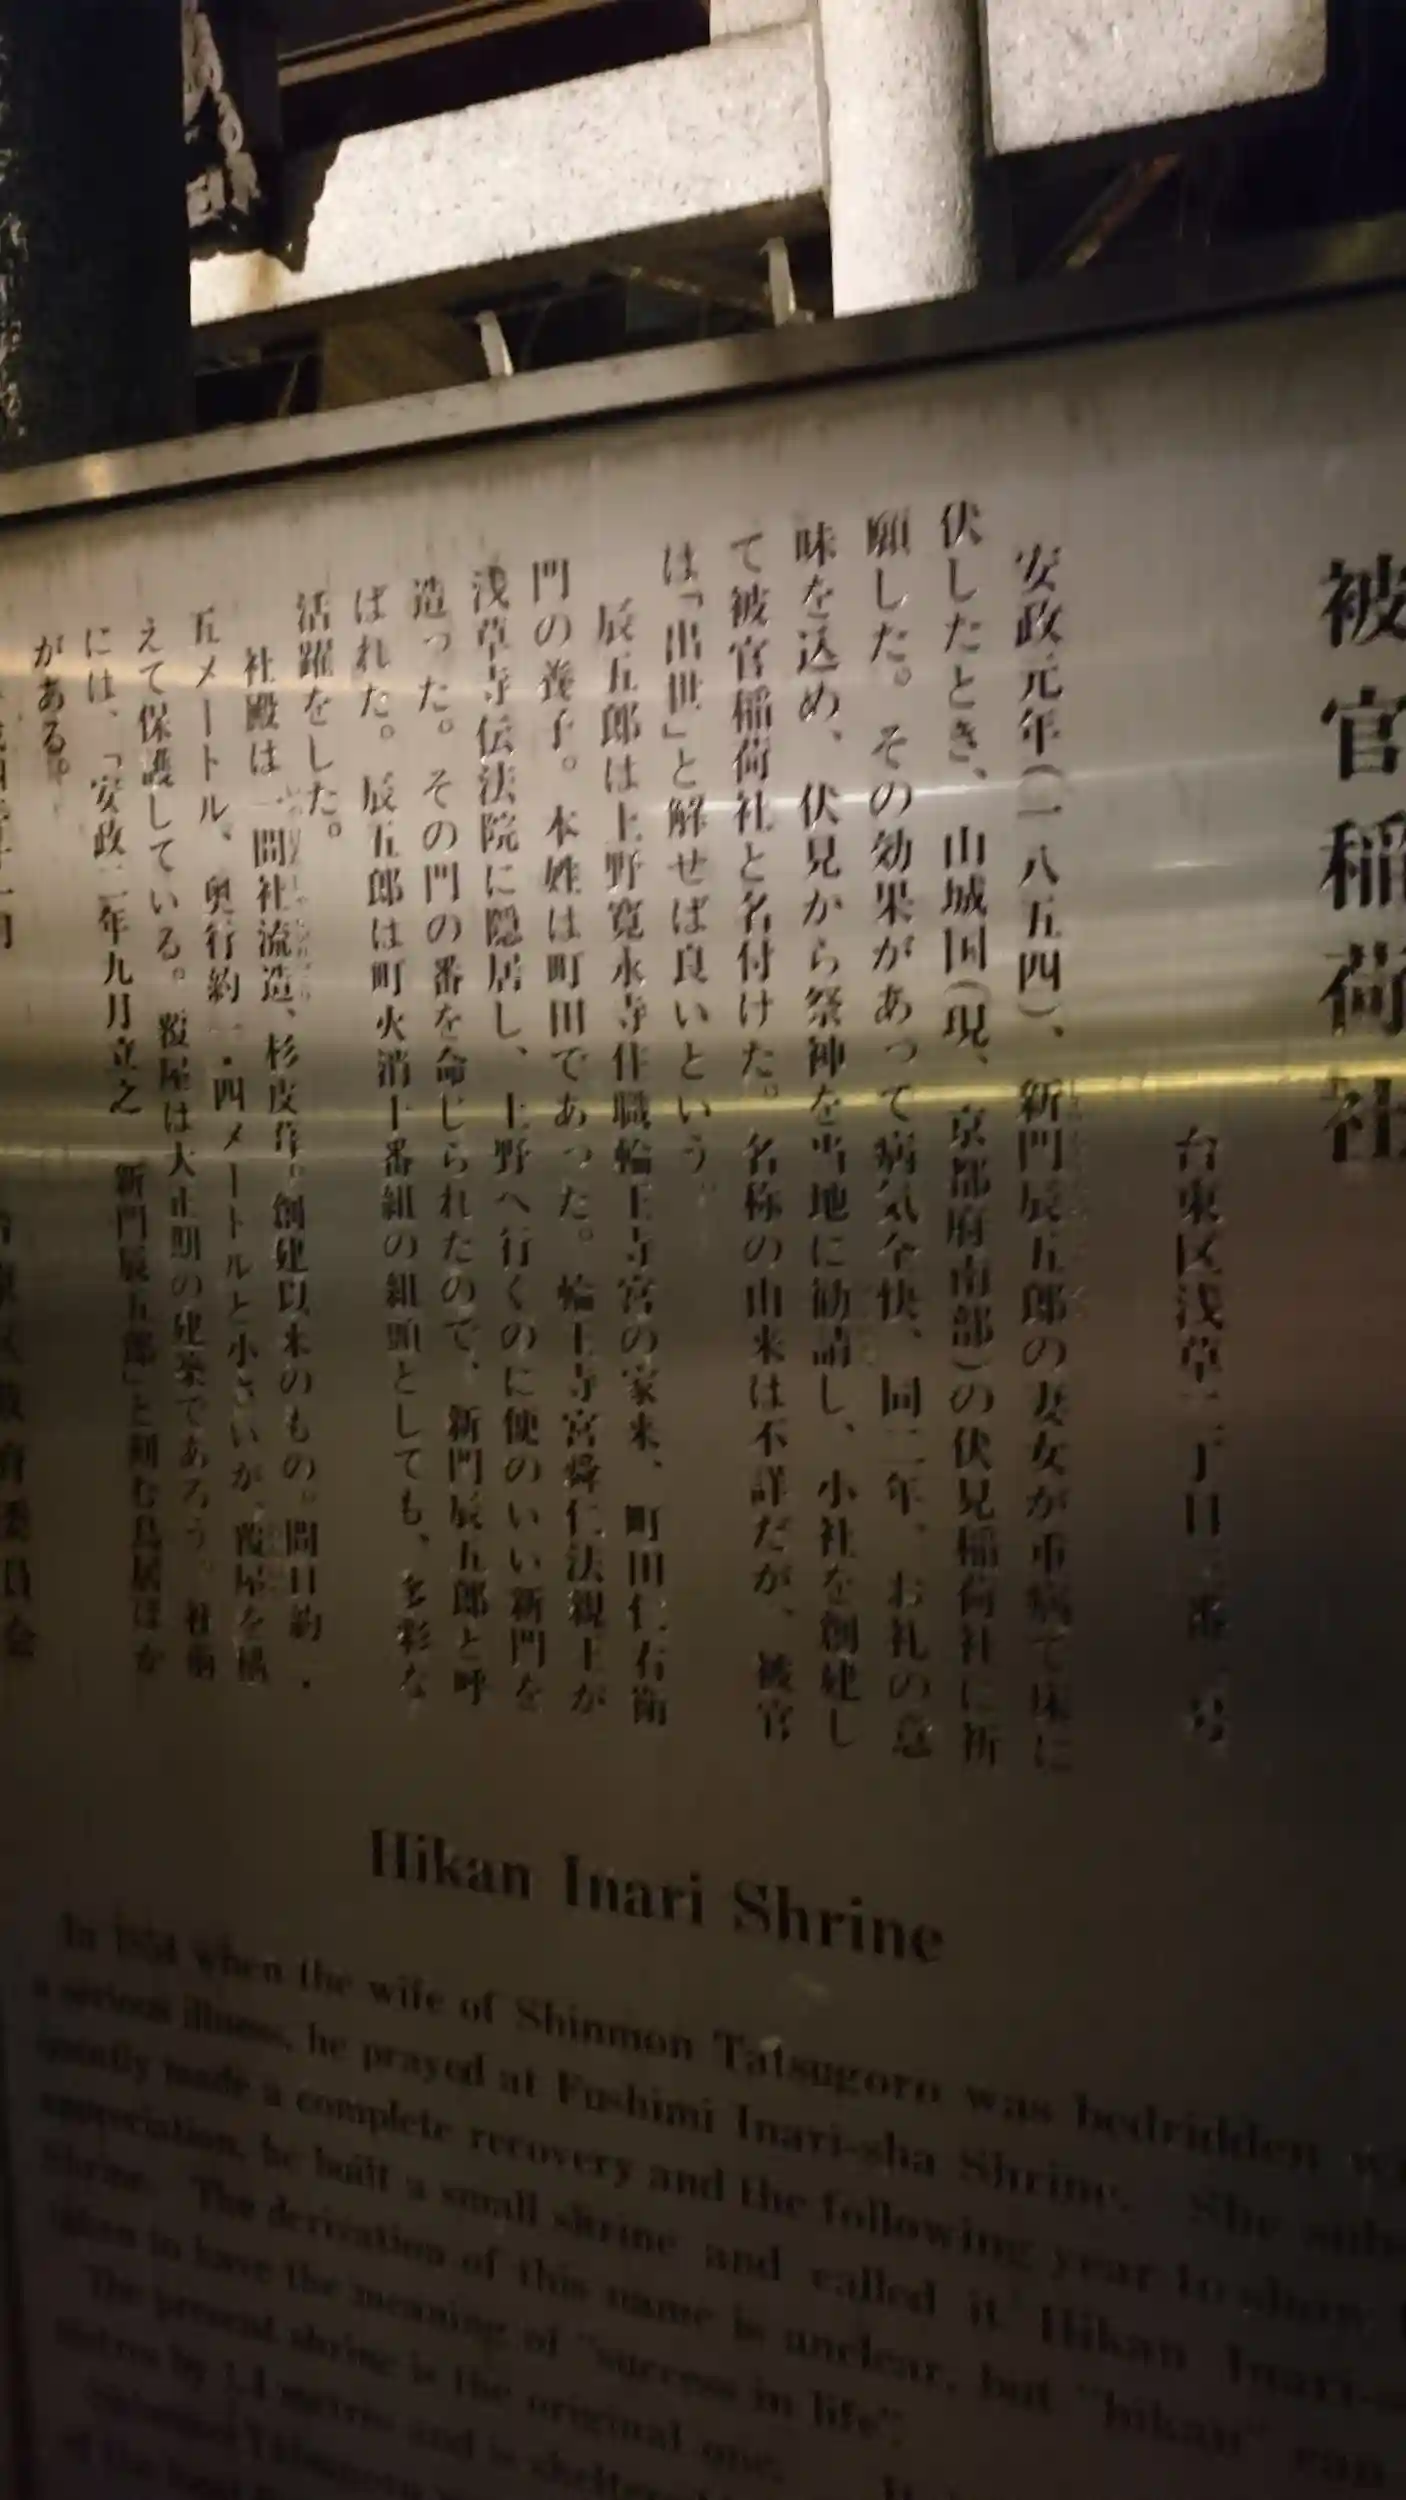 被官稲荷社
台東区浅草二丁目三番一号
安政元年(一八五四)、新門辰五郎の妻女が重病で床に
伏したとき、山城国(現、京都府南部)の伏見稲荷社に祈
願した。その効果があって病気全快、同二年、お礼の意
味を込め、伏見から祭神を当地に勧請し、小社を創建し
て被官稲荷社と名付けた。名称の由来は不詳だが、被官
は「出世」と解せば良いという。
辰五郎は上野寛永寺住職輪王寺宮の家来、町田仁右衛
門の養子。本姓は町田であった。輪王寺宮舜仁法親王が
浅草寺伝法院に隠居し、上野へ行くのに便のいい新門を
造った。その門の番を命じられたので、新門辰五郎と呼
ばれた。辰五郎は町火消十番組の組頭としても、多彩な
活躍をした。
社殿は一間社流造、杉皮葺。創建以来のもの。間口約一・
五メートル、奥行約一・四メートルと小さいが、覆屋を構
えて保護している。覆屋は大正期の建築であろう。社前
には、「安政二年九月立之 新門辰五郎」と刻む鳥居ほか
がある。
Hikan Inari Shrine
In 1854 when the wife of Shinmon Tatsugoro was bedridden
a serious illness, he prayed at Fushimi Inari-sha Shrine. She
made a complete recovery and the following year to show
appreciation, he built a small shrine and called it Hikan
Shrine. The derivation of this name is unclear, but "hikan" can
taken to have the meaning of "success in life".
The present shrine is the original one.
metres by 1.4 metres and is